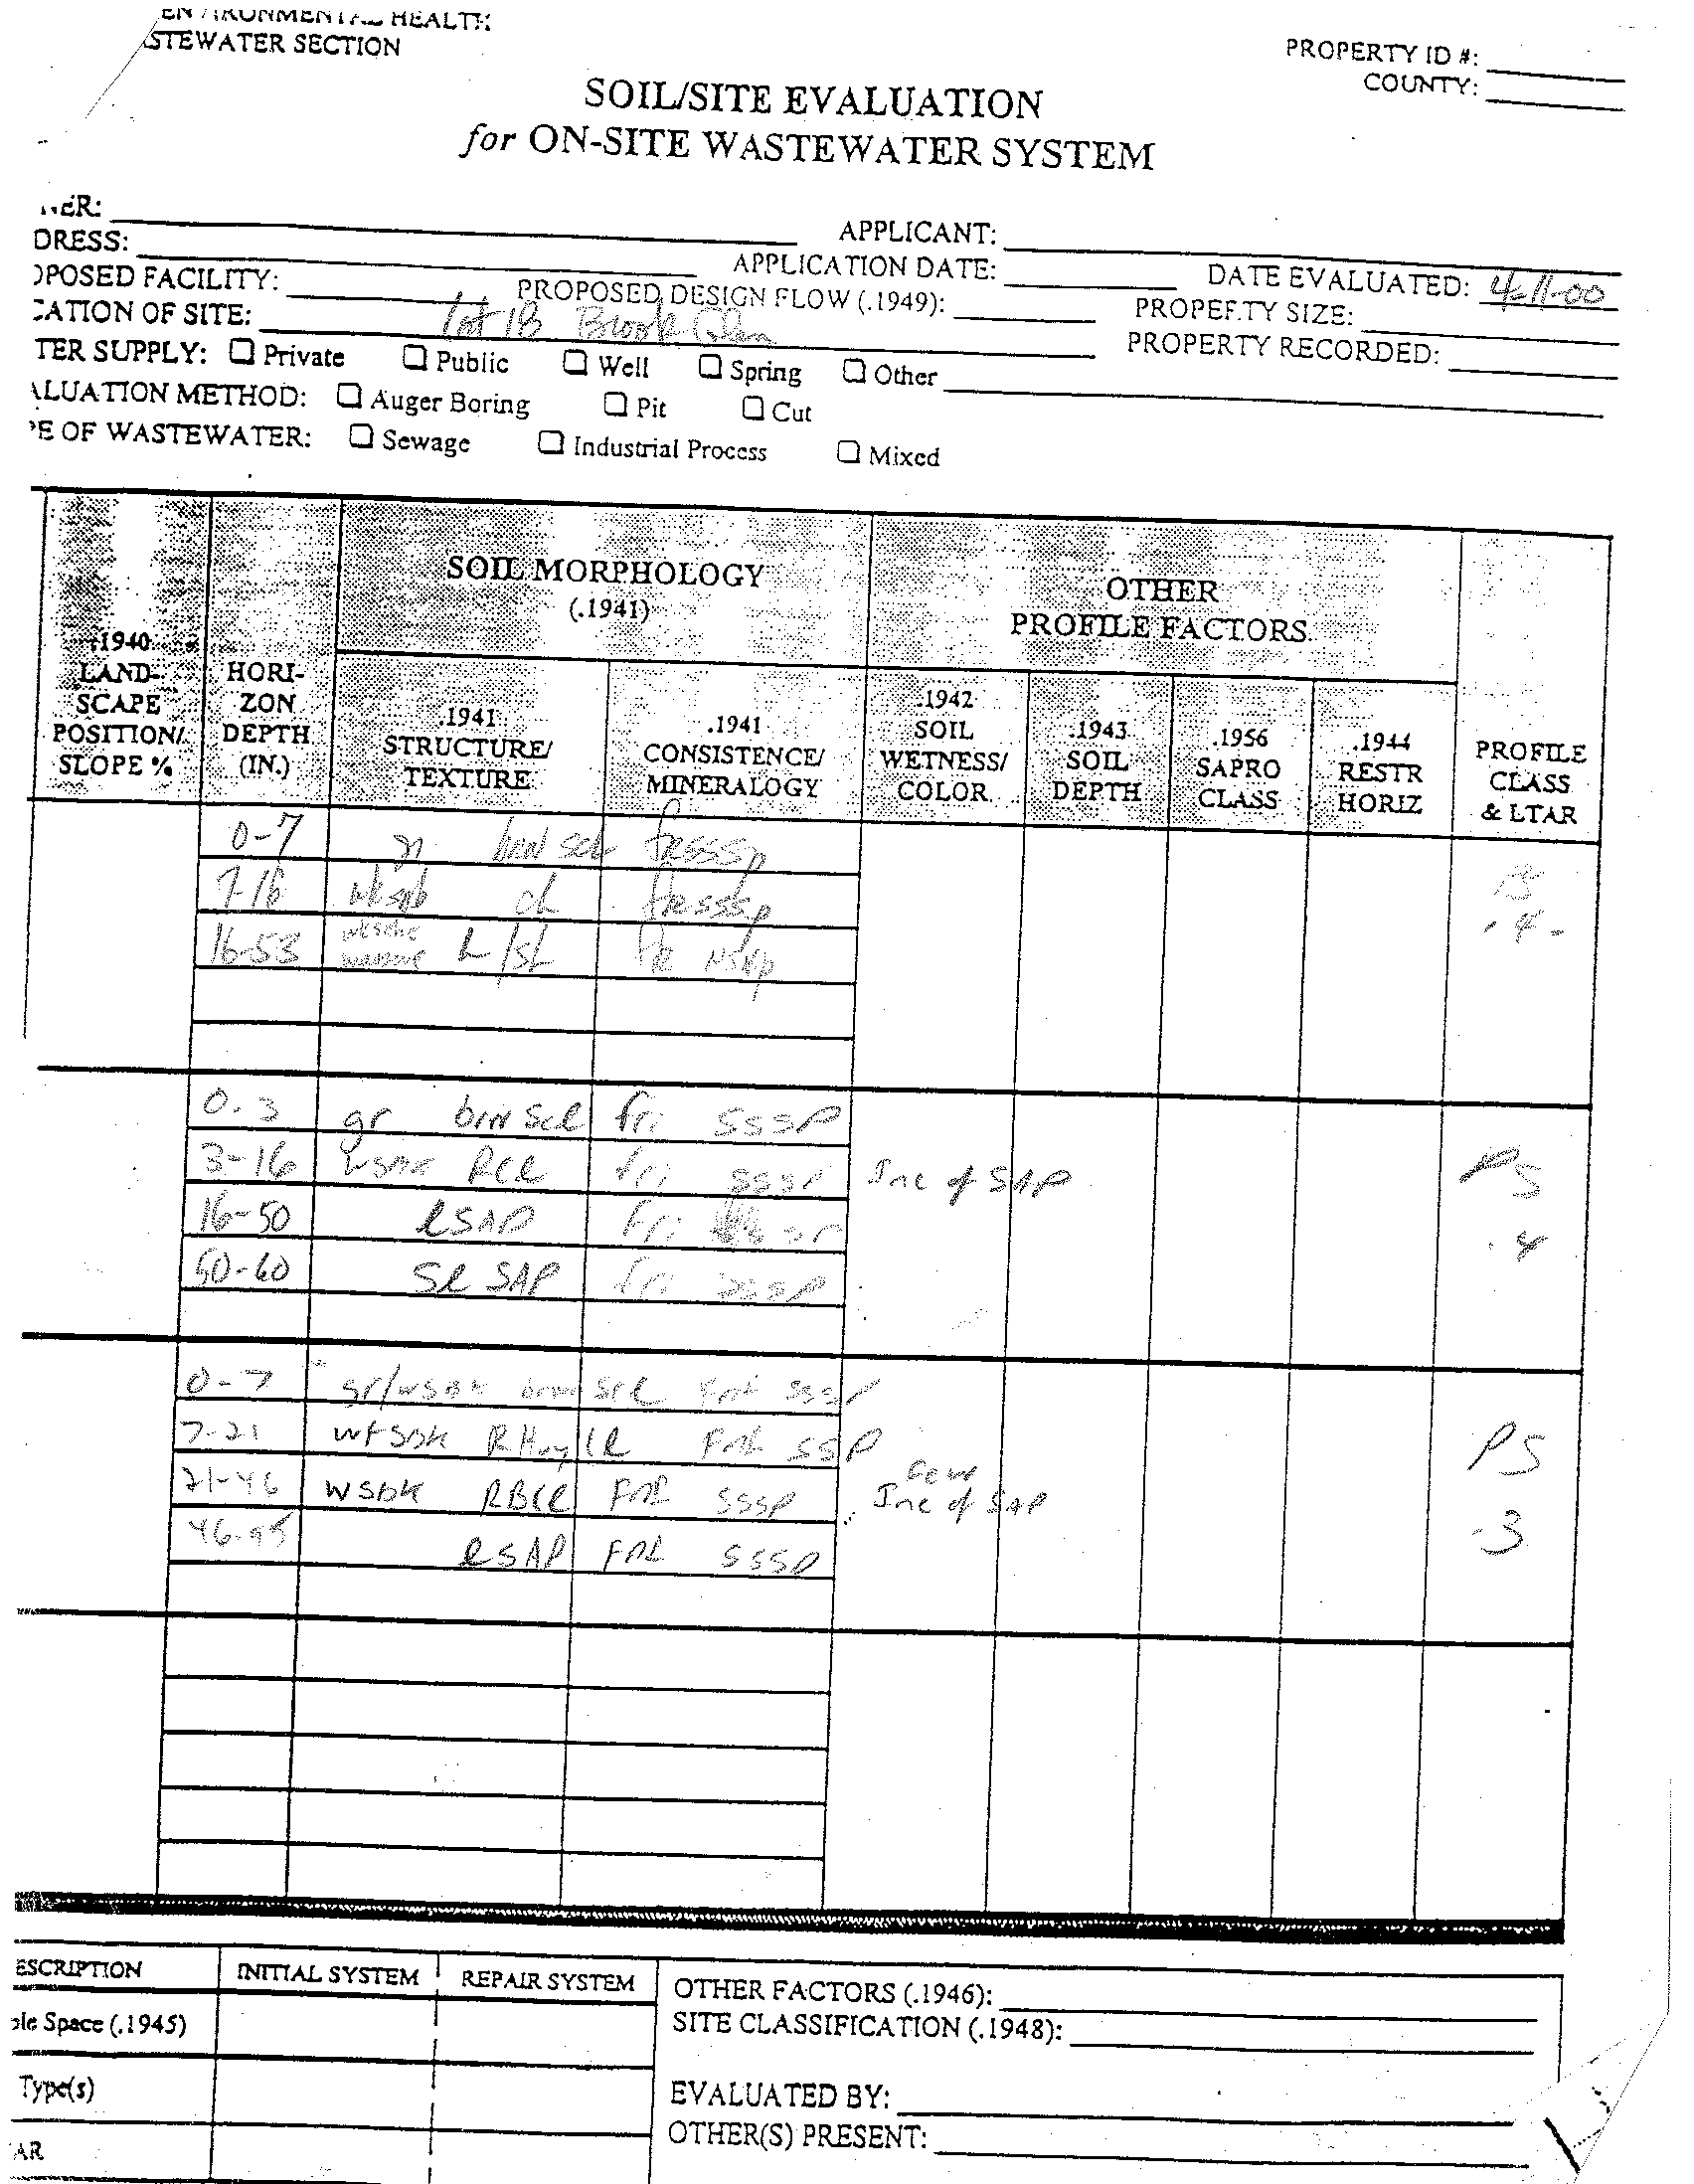 HEALTH
STEWATER SECTION
PROPERTY ID #:
COUNTY:
SOIL/SITE EVALUATION
for ON-SITE WASTEWATER SYSTEM
NER:
APPLICANT:
DRESS:
APPLICATION DATE:
DATE EVALUATED: 4-11-00
OPOSED FACILITY:
PROPOSED DESIGN FLOW (.1949):
PROPERTY SIZE:
CATION OF SITE: Lot 18 Brook Glen
PROPERTY RECORDED:
TER SUPPLY: ☐ Private ☐ Public ☐ Well ☐ Spring ☐ Other
ALUATION METHOD: ☐ Auger Boring ☐ Pit ☐ Cut
PE OF WASTEWATER: ☐ Sewage ☐ Industrial Process ☐ Mixed
SOIL MORPHOLOGY
(.1941)
OTHER
PROFILE FACTORS
.1940
LAND-
SCAPE
POSITION/
SLOPE %
HORI-
ZON
DEPTH
(IN.)
.1941
STRUCTURE/
TEXTURE
.1941
CONSISTENCE/
MINERALOGY
.1942
SOIL
WETNESS/
COLOR
.1943
SOIL
DEPTH
.1956
SAPRO
CLASS
.1944
RESTR
HORIZ
PROFILE
CLASS
& LTAR
0-7 brn scl frsssp
7-16 wksbk cl frsssp
16-53 massive L/SL fr nsnp
.4
0-3 gr brn scl fri SSSP
3-16 wsbk Rcl fri SSSP Inc of SAP
PS
16-50 lSAP fri
.4
50-60 Sl SAP fri SSSP
0-7 gr/wsbk brn scl SSSP
7-21 wfsbk SSP
PS
21-46 wsbk RBCl SSSP
few
Inc of SAP
.3
lSAP SSSP
ESCRIPTION
INITIAL SYSTEM
REPAIR SYSTEM
OTHER FACTORS (.1946):
ble Space (.1945)
SITE CLASSIFICATION (.1948):
Type(s)
EVALUATED BY:
AR
OTHER(S) PRESENT: